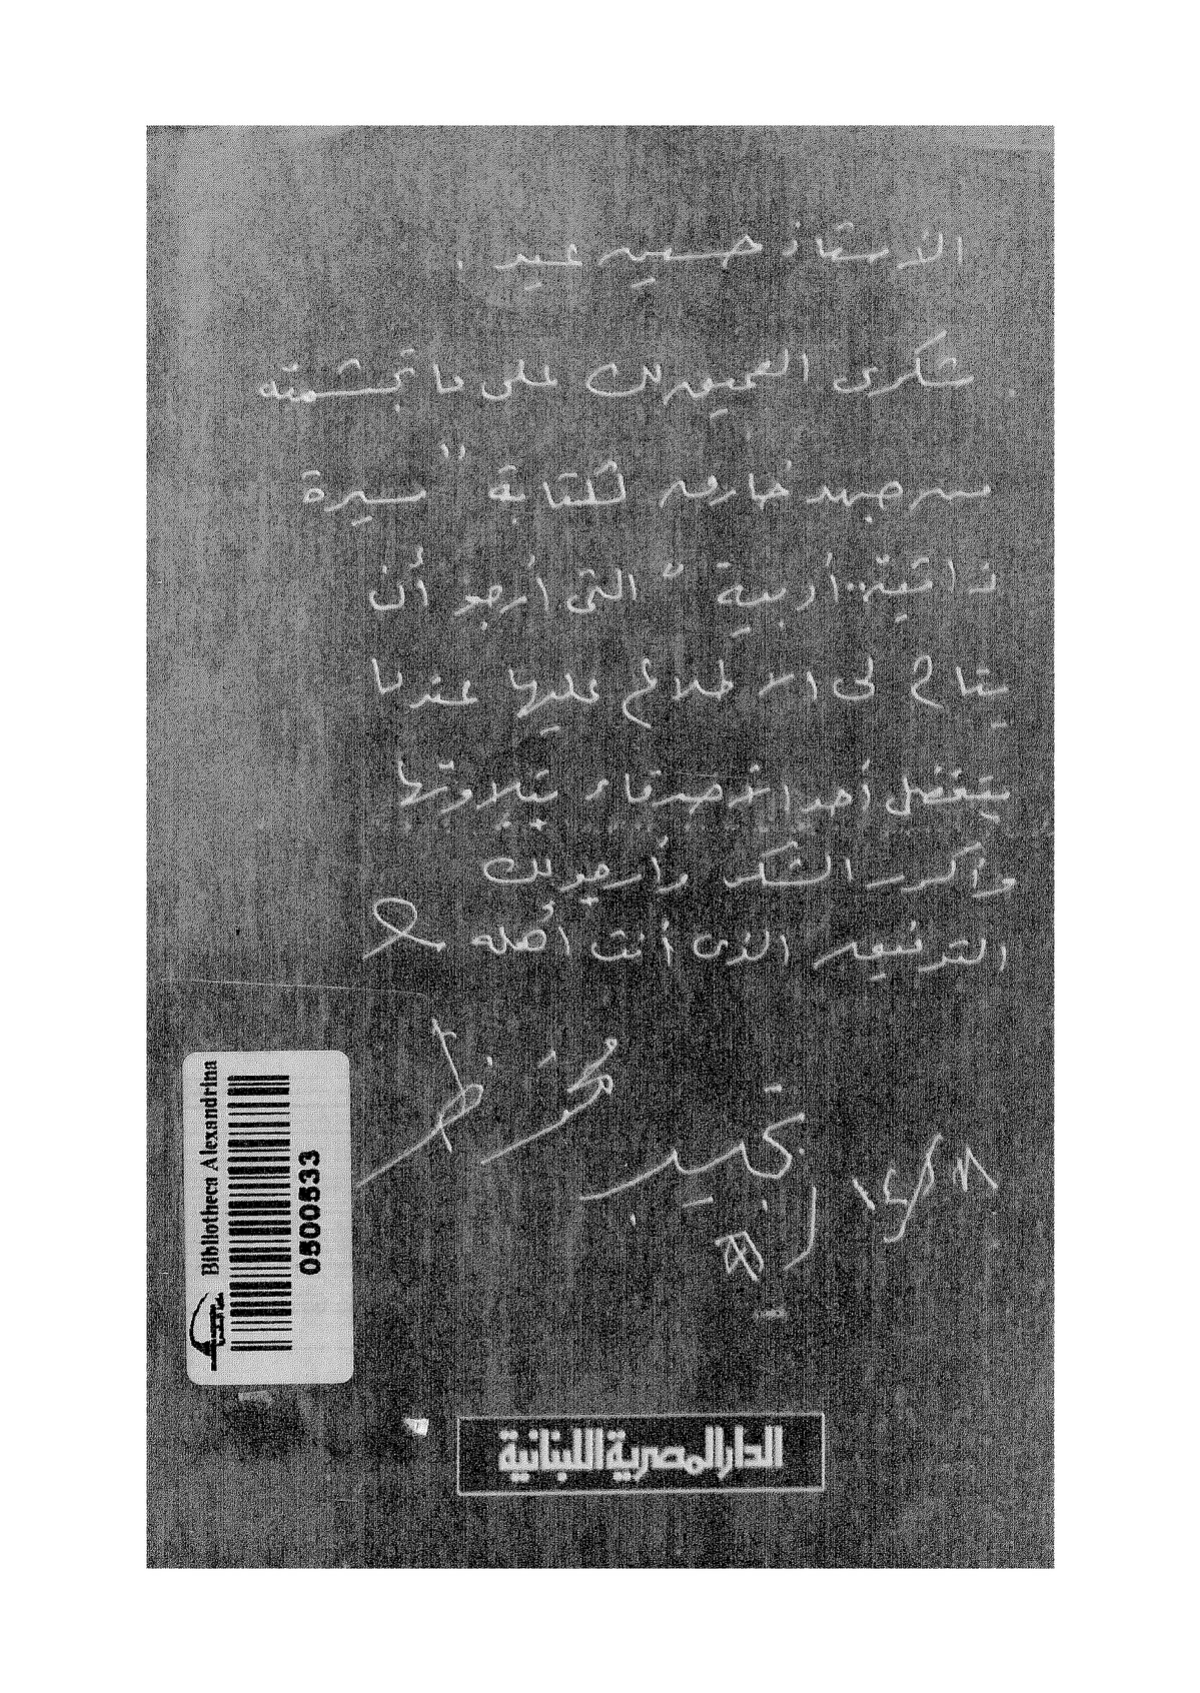 الأستاذ حسين عيد .
شكرى العميق لك على ما تجشمته
من جهد خارق لكتابة " سيرة
ذاتية.. أدبية " التى أرجو أن
يتاح لى الاطلاع عليها عندما
يتفضل أحد الأصدقاء بتلاوتها
وأكرر الشكر وأرجو لك
التوفيق الذى أنت أهله
نجيب محفوظ
Bibliotheca Alexandrina
0500533
الدار المصرية اللبنانية